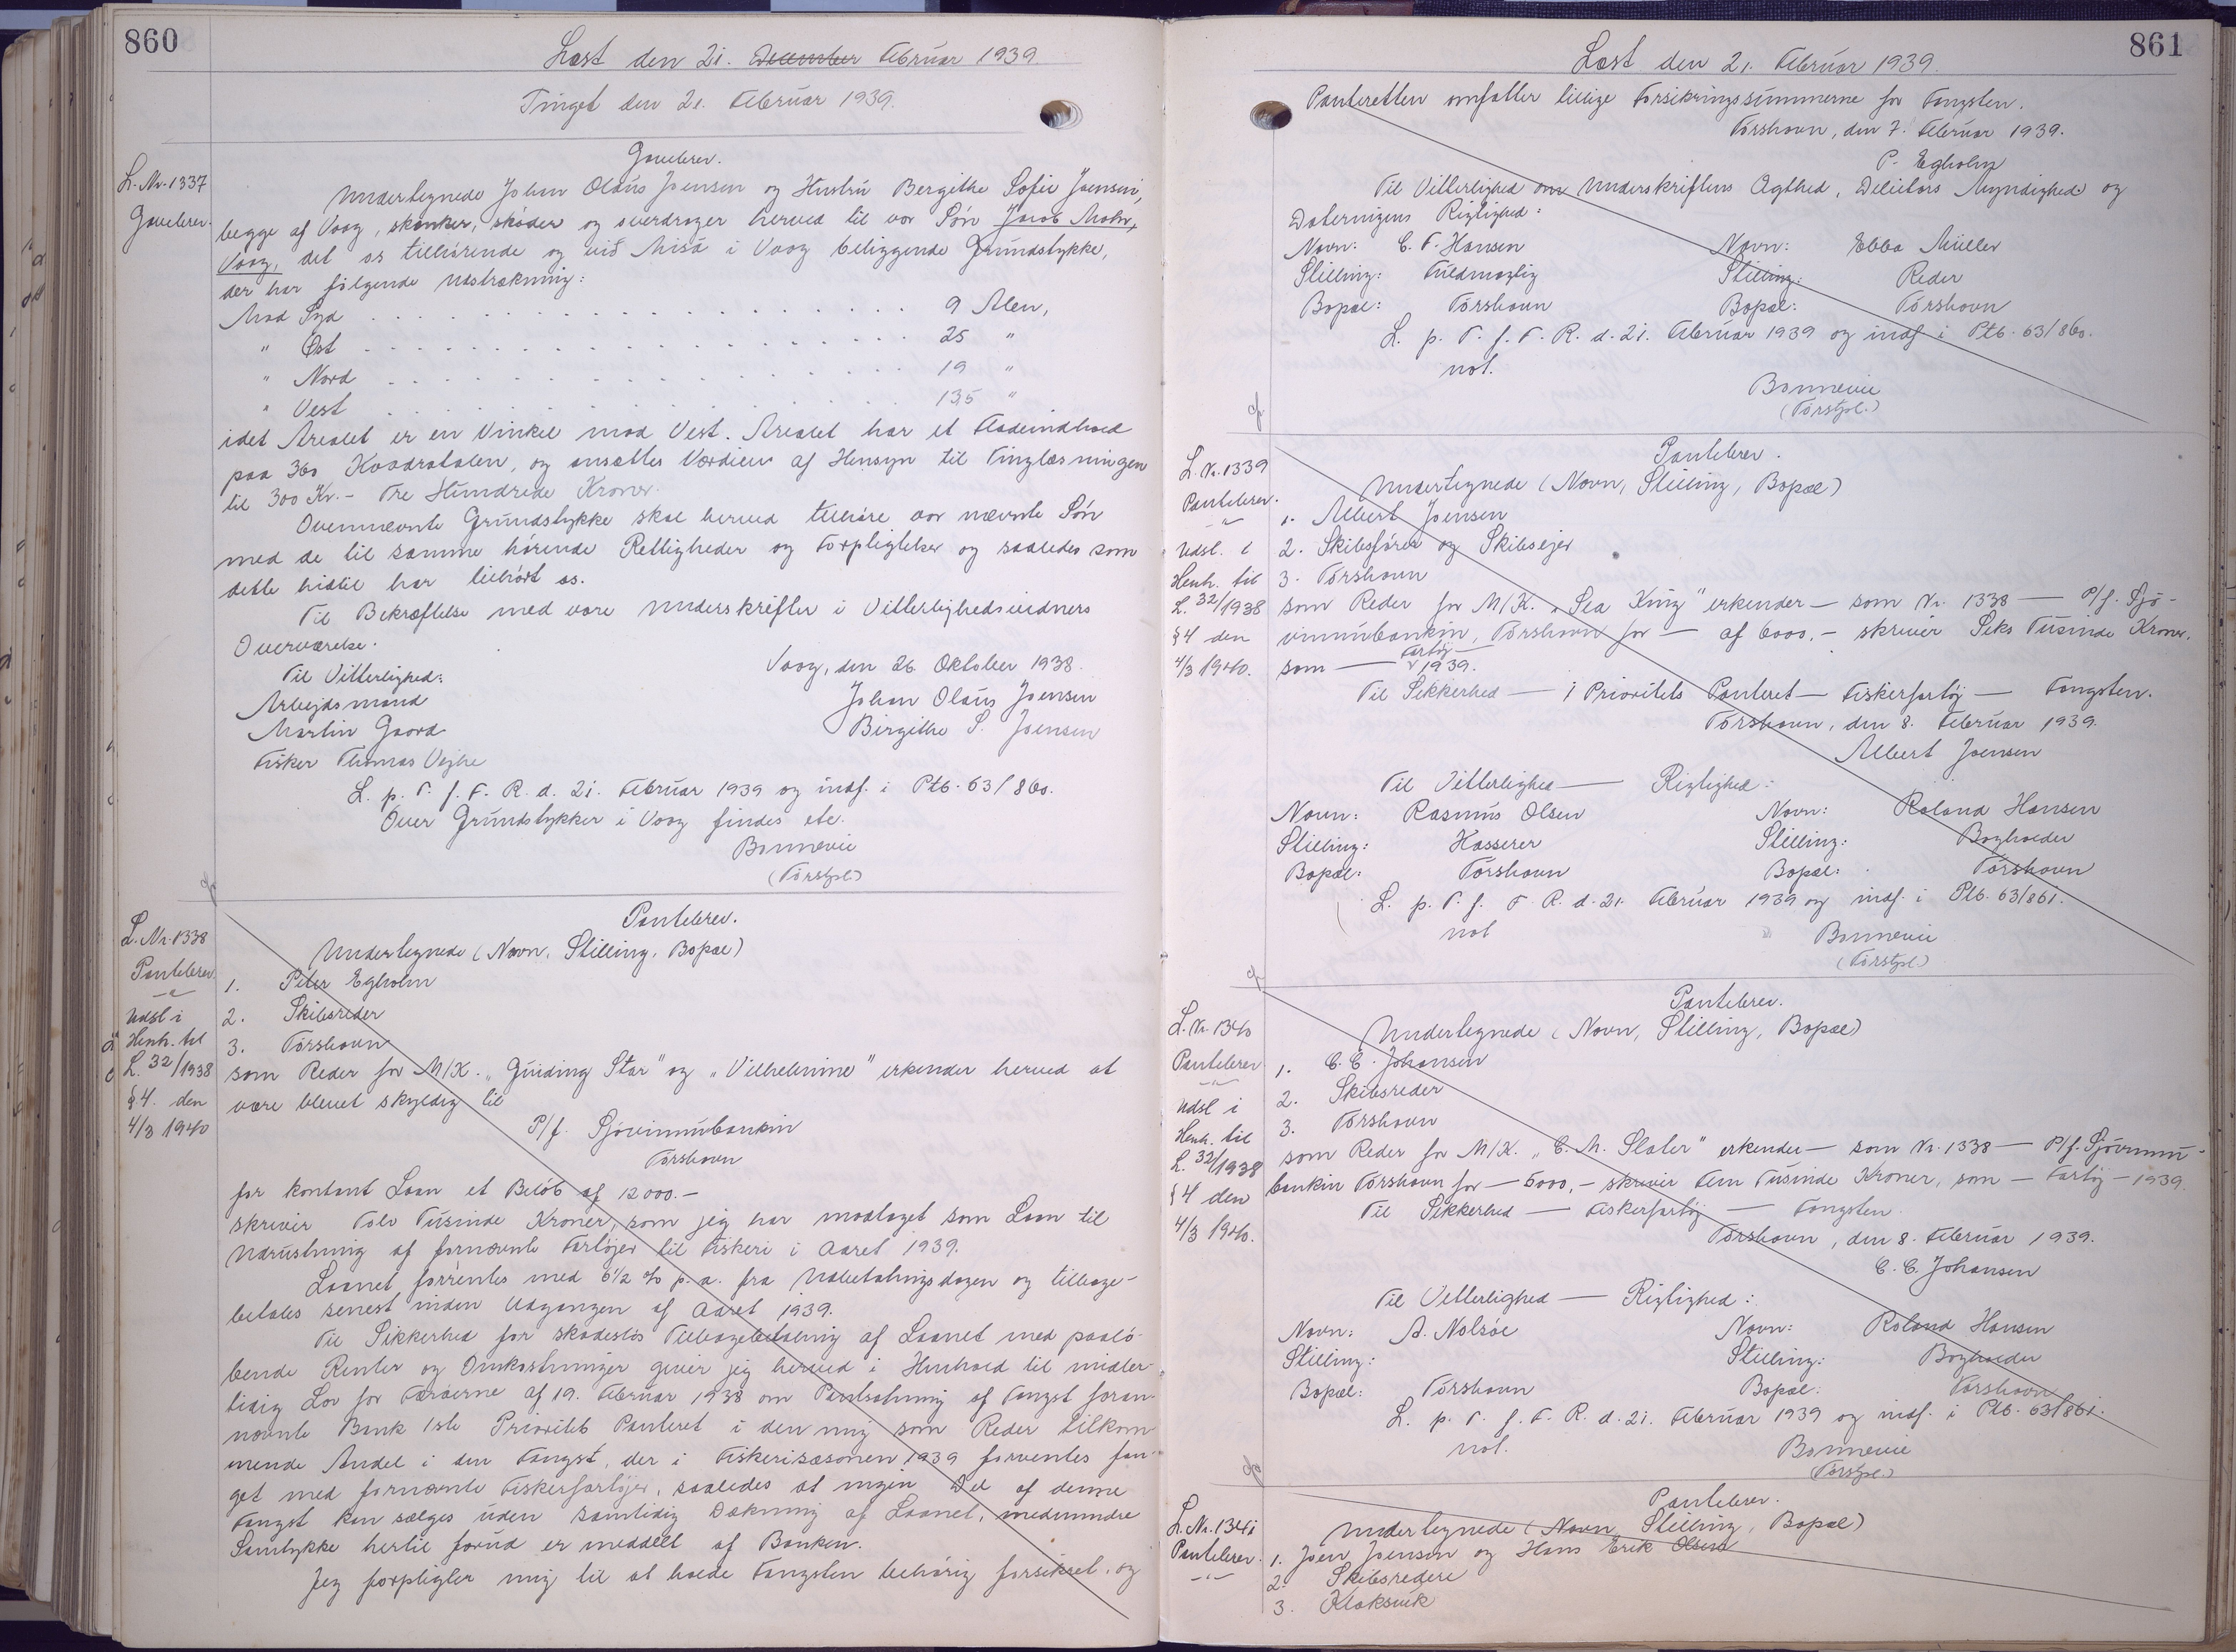 860
Læst den 21. December Februar 1939.
Tinget den 21. Februar 1939.
L. Nr. 1337
Gavebrev.
Gavebrev.
Undertegnede Johan Olaus Joensen og Hustru Bergithe Sofie Joensen,
begge af Vaag, skænker, skøder og overdrager herved til vor Søn Jacob Mohr,
Vaag, det os tilhørende og við Misá i Vaag beliggende Grundstykke,
der har følgende Udstrækning:
Mod Syd . . . . . . . . . 9 Alen,
" Øst . . . . . . . . . 25 "
" Nord . . . . . . . . . 19 "
" Vest . . . . . . . . . 13,5 "
idet Arealet er en Vinkel mod Vest. Arealet har et Fladeindhold
paa 360 Kvadratalen, og ansættes Værdien af Hensyn til Tinglæsningen
til 300 Kr. - Tre Hundrede Kroner.
Ovennævnte Grundstykke skal herved tilhøre vor nævnte Søn
med de til samme hørende Rettigheder og Forpligtelser og saaledes som
dette hidtil har tilhørt os.
Til Bekræftelse med vore Underskrifter i Vitterlighedsvidners
Overværelse.
Vaag, den 26. Oktober 1938.
Til Vitterlighed:
Johan Olaus Joensen
Arbejdsmand
Birgithe S. Joensen
Martin Gaard
Fisker Thomas Vejhe
L. p. T. f. F. R. d. 21. Februar 1939 og indf. i Ptb. 63/860.
Over Grundstykker i Vaag findes etc.
Bonnevie
(Torstpl.)
L. Nr. 1338
Pantebrev
Udsl i
Henh. til
L. 32/1938
§ 4. den
4/3 1940
Pantebrev.
Undertegnede (Navn, Stilling, Bopæl)
1. Peter Egholm
2. Skibsreder
3. Torshavn
som Reder for M/K. „Guiding Star" og „Vilhelmine" erkender herved at
være blevet skyldig til
P/f. Sjóvinnubankin
Torshavn
for kontant Laan et Beløb af 12000.-
skriver Tolv Tusinde Kroner, som jeg har modtaget som Laan til
Udrustning af fornævnte Fartøjer til Fiskeri i Aaret 1939.
Laanet forrentes med 6½ % p.a. fra Udbetalingsdagen og tilbage-
betales senest inden Udgangen af Aaret 1939.
Til Sikkerhed for skadesløs Tilbagebetaling af Laanet med paalø-
bende Renter og Omkostninger giver jeg herved i Henhold til midler-
tidig Lov for Færøerne af 19. Februar 1938 om Pantsætning af Fangst foran-
nævnte Bank 1ste Prioritets Panteret i den mig som Reder tilkom-
mende Andel i den Fangst, der i Fiskerisæsonen 1939 forventes fan-
get med fornævnte Fiskerfartøjer, saaledes at ingen Del af denne
Fangst kan sælges uden samtidig Dækning af Laanet, medmindre
Samtykke hertil forud er meddelt af Banken.
Jeg forpligter mig til at holde Fangsten behørig forsikret, og
861
Læst den 21. Februar 1939.
Panteretten omfatter tillige Forsikringssummerne for Fangsten.
Torshavn, den 7. Februar 1939.
P. Egholm
Til Vitterlighed om Underskriftens Ægthed, Debitors Myndighed og
Dateringens Rigtighed:
Navn: C. F. Hansen Navn: Ebba Müller
Stilling: Fuldmægtig Stilling: Reder
Bopæl: Torshavn Bopæl: Torshavn
L. p. T. f. F. R. d. 21. Februar 1939 og indf. i Ptb. 63/860.
not.
Bonnevie
(Torstpl.)
L. Nr. 1339
Pantebrev.
Udsl. i
Henh. til
L. 32/1938
§ 4 den
4/3 1940.
Pantebrev.
Undertegnede (Navn, Stilling, Bopæl)
1. Albert Joensen
2. Skibsfører og Skibsejer
3. Torshavn
som Reder for M/K. „Sea King" erkender — som Nr. 1338 — P/f. Sjó-
vinnubankin, Torshavn for — af 6000.- skriver Seks Tusinde Kroner,
som — Fartøj — 1939.
Til Sikkerhed — 1 Prioritets Panteret — Fiskerfartøj — Fangsten.
Torshavn, den 8. Februar 1939.
Albert Joensen
Til Vitterlighed — Rigtighed:
Navn: Rasmus Olsen Navn: Roland Hansen
Stilling: Kasserer Stilling: Bogholder
Bopæl: Torshavn Bopæl: Torshavn
L. p. T. f. F. R. d. 21. Februar 1939 og indf. i Ptb. 63/861.
not
Bonnevie
(Torstpl.)
L. Nr. 1340
Pantebrev
Udsl i
Henh. til
L. 32/1938
§ 4 den
4/3 1940.
Pantebrev.
Undertegnede (Navn, Stilling, Bopæl)
1. C. C. Johansen
2. Skibsreder
3. Torshavn
som Reder for M/K. „E. M. Slater" erkender — som Nr. 1338 — P/f. Sjóvinnu-
bankin Torshavn for — 5000,- skriver Fem Tusinde Kroner, som — Fartøj — 1939.
Til Sikkerhed — Fiskerfartøj — Fangsten.
Torshavn, den 8. Februar 1939.
C. C. Johansen
Til Vitterlighed — Rigtighed:
Navn: A. Nolsøe Navn: Roland Hansen
Stilling: Stilling: Bogholder
Bopæl: Torshavn Bopæl: Torshavn
L. p. T. f. F. R. d. 21. Februar 1939 og indf. i Ptb. 63/861.
not.
Bonnevie
(Torstpl.)
L. Nr. 1341
Pantebrev.
Pantebrev.
Undertegnede (Navn, Stilling, Bopæl)
1. Joen Joensen og Hans Erik Olsen
2. Skibsredere
3. Klaksvik